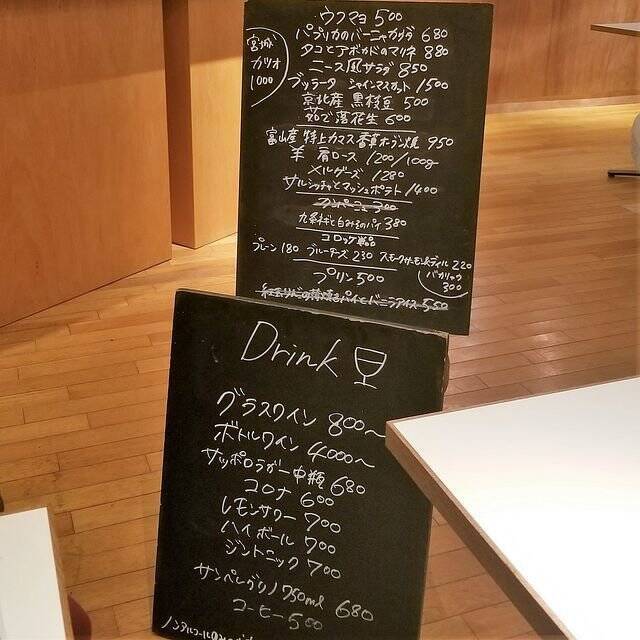 ウフマヨ 500
パプリカのバーニャカウダ 680
タコとアボカドのマリネ 880
ニース風サラダ 850
宮城
カツオ
1000
ブッラータ シャインマスカット 1500
京北産 黒枝豆 500
茹で落花生 600
富山産 特上カマス 香草オーブン焼 950
羊 肩ロース 1200/100g
メルゲーズ 1280
サルシッチャとマッシュポテト 1400
300
九条ネギと白みそのパイ 380
コロッケ
プレーン 180 ブルーチーズ 230 スモークサーモン&ディル 220
バカリャウ
300
プリン 500
紅玉りんごの薄焼きパイとバニラアイス 550
Drink
グラスワイン 800〜
ボトルワイン 4000〜
サッポロラガー中瓶 680
コロナ 600
レモンサワー 700
ハイボール 700
ジントニック 700
サンペレグリノ 750ml 680
コーヒー 500
ノンアルコール